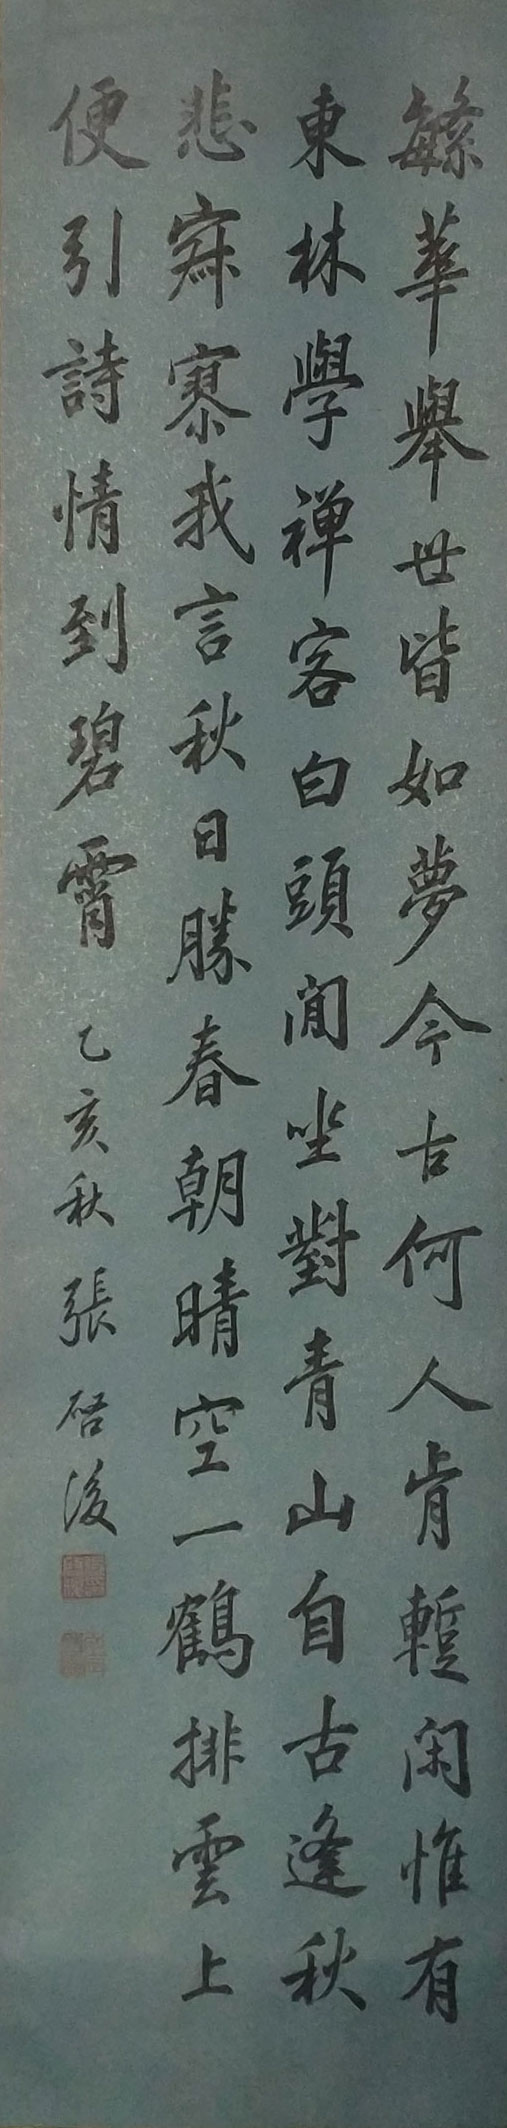 緐華舉世皆如夢今古何人肯蹔閑惟有
東林學禅客白頭閒坐對青山自古逢秋
悲寂寥我言秋日勝春朝晴空一鶴排雲上
便引詩情到碧霄 乙亥秋 張啓後